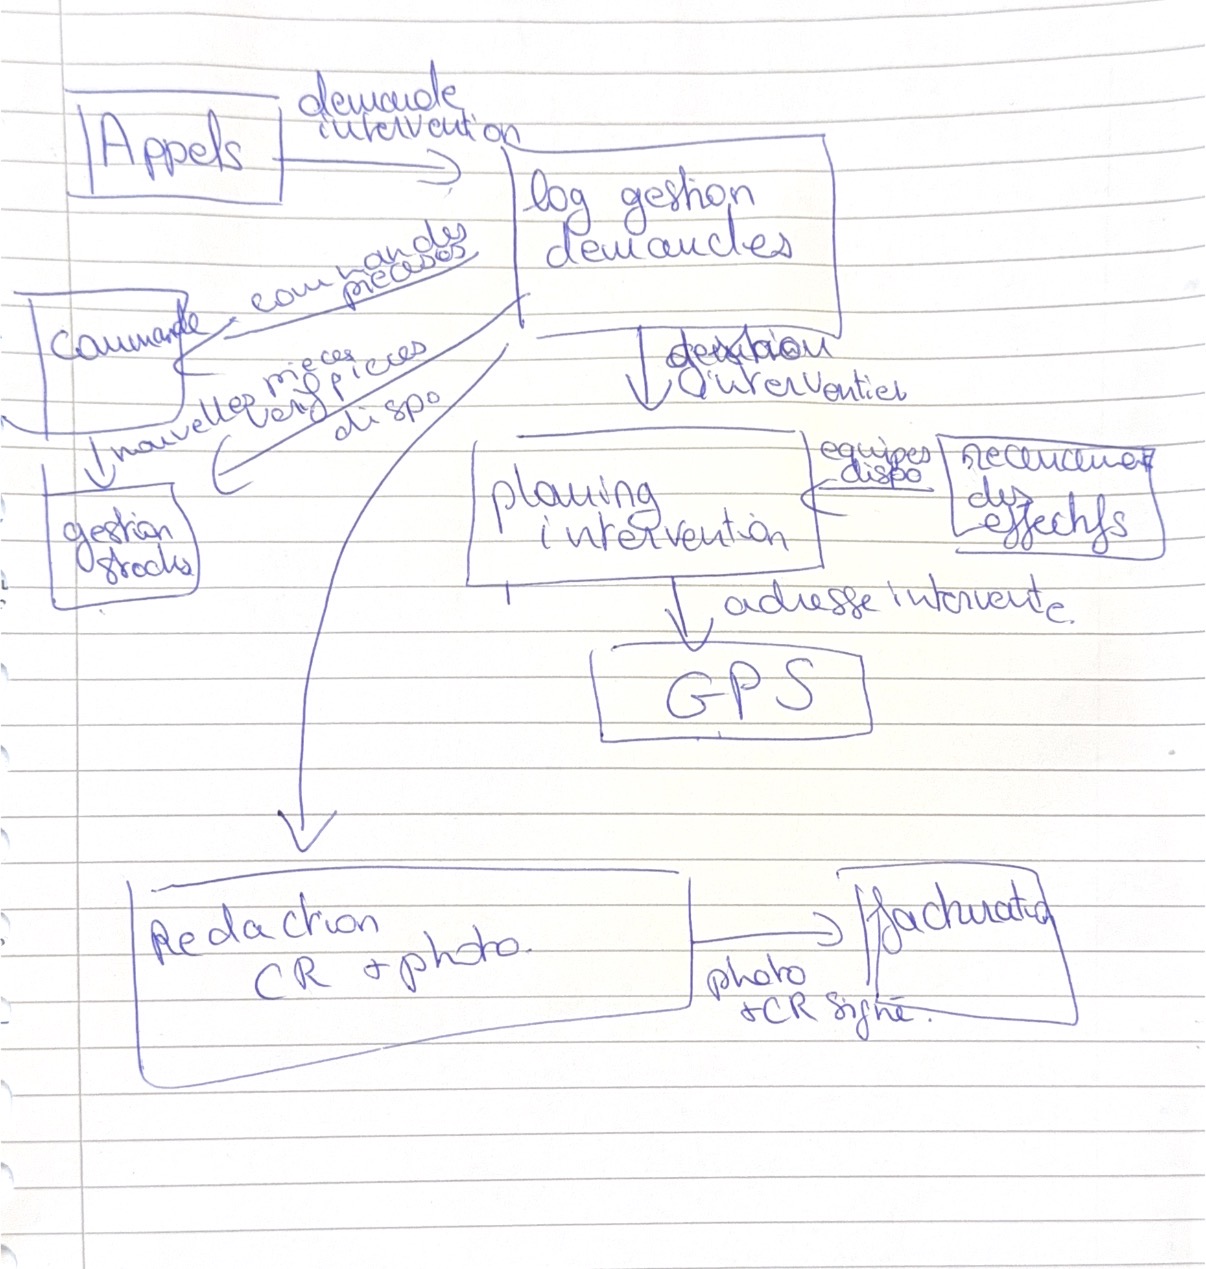 Appels
demande
intervention
log gestion
demandes
commandes
pieces
Commande
nouvelles pieces
verif pieces
dispo
d'intervention
gestion
stocks
planing
intervention
equipes
dispo
des
effectifs
adresse intervente.
GPS
Redaction
CR + photo.
photo
+CR signé.
facturatio